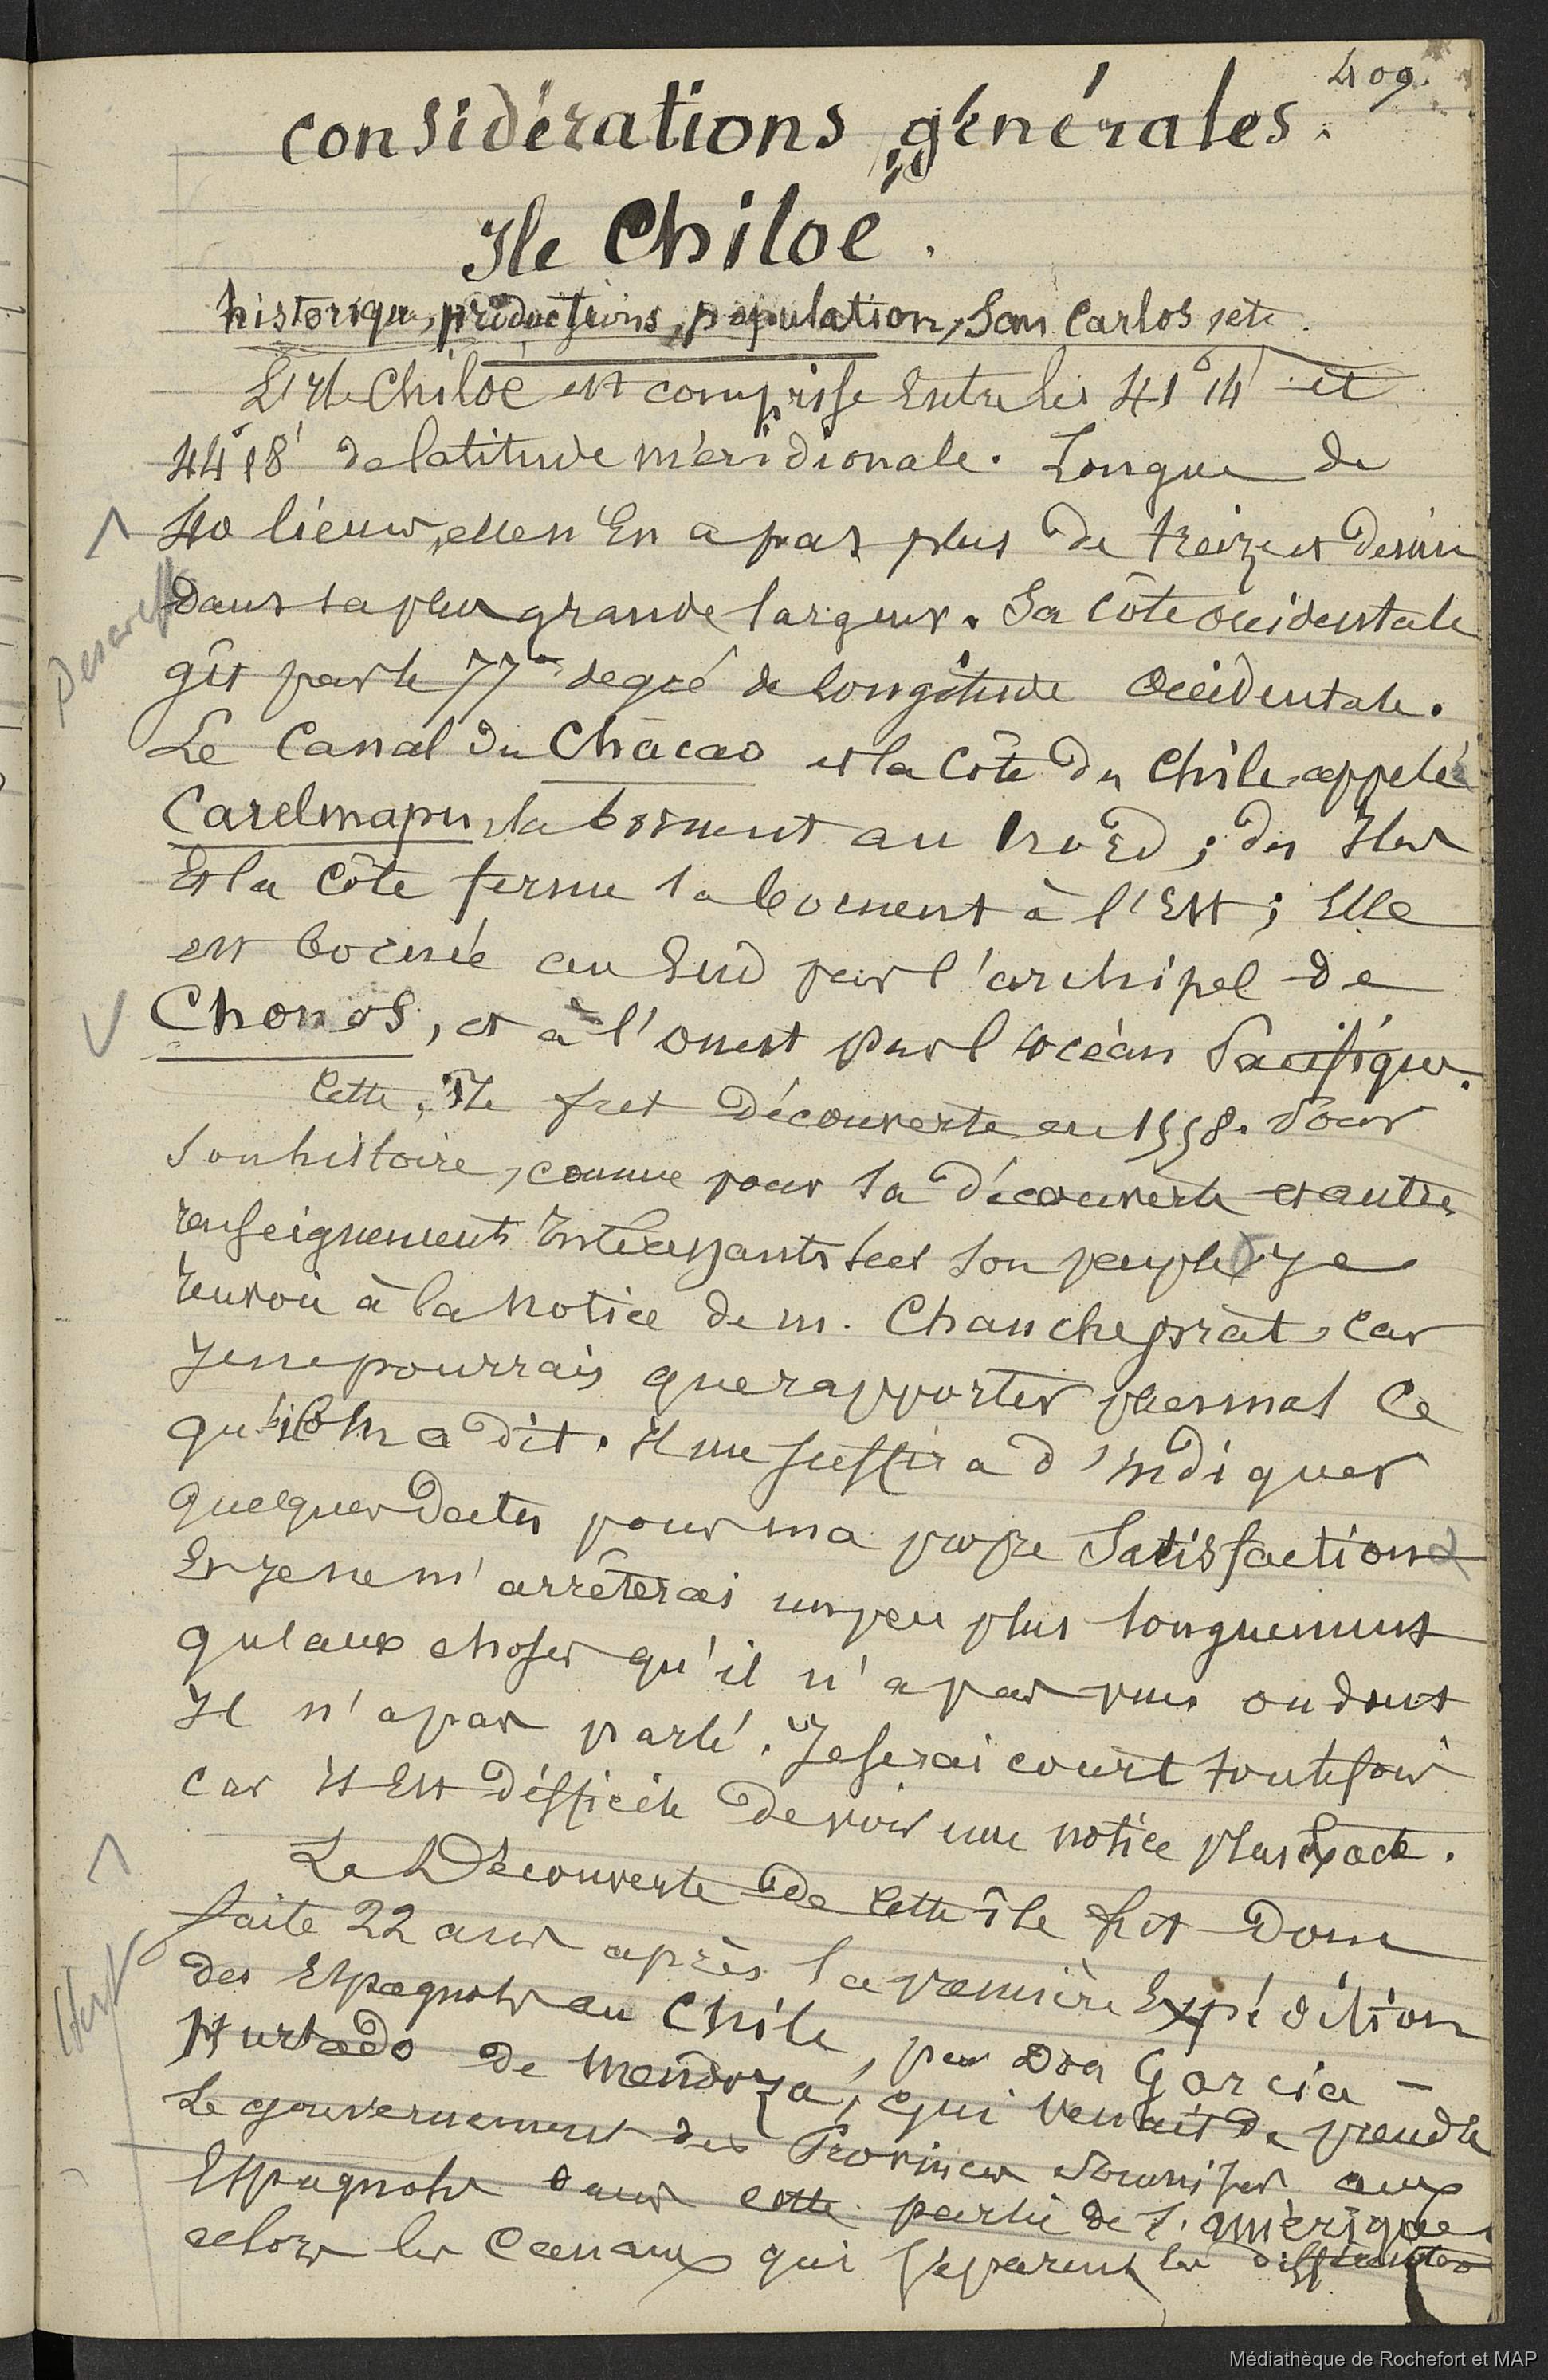 409.
considérations générales.
Ile Chiloé.
historique, productions, population, San Carlos, etc.
L'Ile Chiloé est comprise Entre les 41° 14' et
44° 18' de latitude méridionale. Longue de
40 lieues, elle n'En a pas plus de treize et demie
dans sa plus grande largeur. Sa côte occidentale
gît par le 77e degré de longitude occidentale.
Le Canal du Chacao et la Côte du Chile appelée
Carelmapu, la bornent au nord ; des Iles
Et la Côte ferme la bornent à l'Est ; Elle
est bornée au Sud par l'archipel de
Chonos, et à l'ouest par l'océan Pacifique.
Cette Ile fut découverte en 1558. Pour
son histoire, comme pour sa découverte et autres
renseignements Intéressants sur son peuple, je
renvoi à la notice de m. Chaucheprat, car
je ne pourrais que rapporter plus mal Ce
qu'il En a dit. Il me suffira d'Indiquer
quelques dates pour ma propre Satisfaction
Et je ne m'arrêterai un peu plus longuement
qu'aux choses qu'il n'a pas vues ou dont
Il n'a pas parlé. Je serai court toutefois
car Il Est difficile de voir une notice plus Exacte.
La Découverte de cette île fut Donc
faite 22 ans après la première Expédition
des Espagnols au Chile, par Don Garcia
Hurtado de Mendoza, qui venait de prendre
Le gouvernement des Provinces soumises aux
Espagnols dans cette partie de l'amérique
alors les Canaux qui séparent les différentes
Médiathèque de Rochefort et MAP